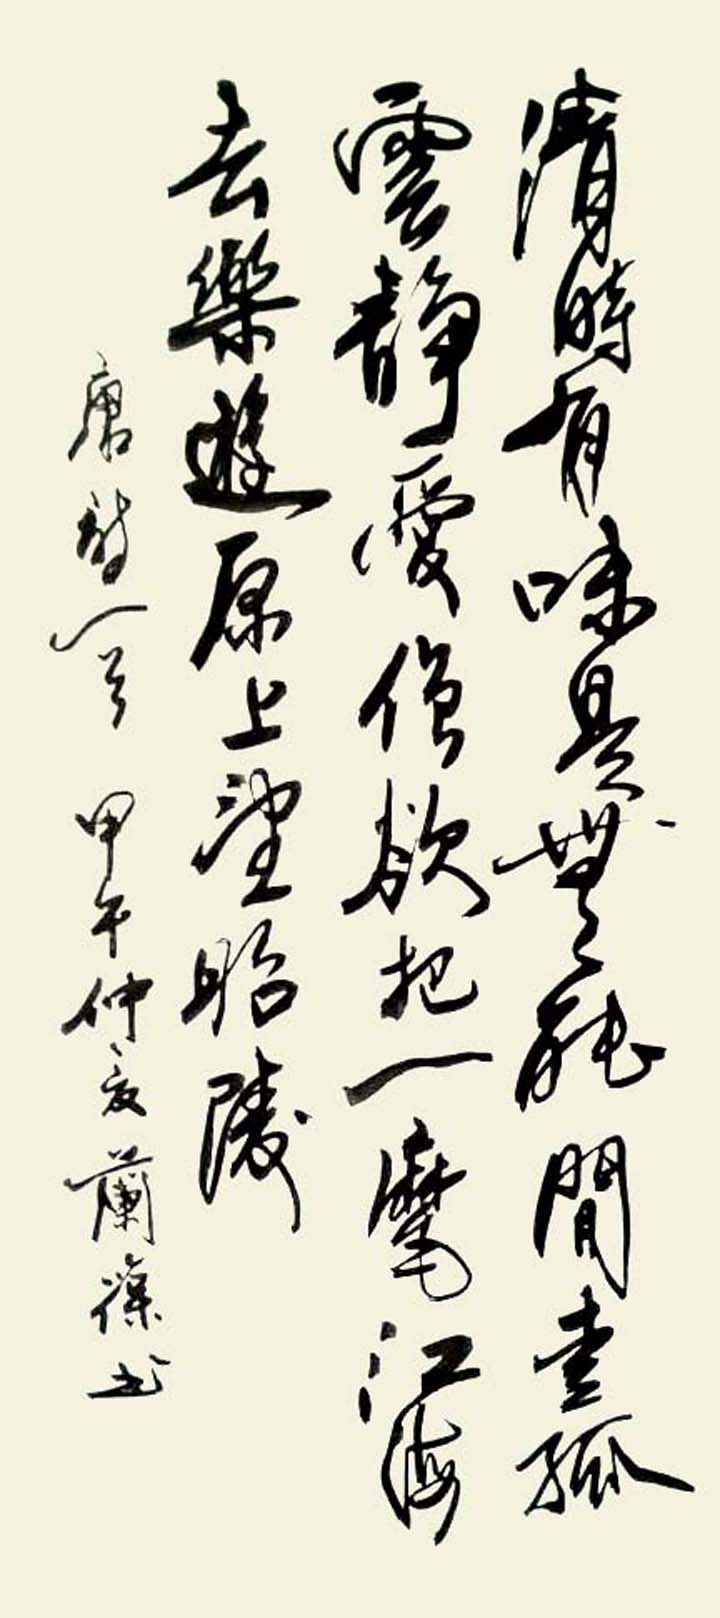 清時有味是無能閒愛孤
雲靜愛僧欲把一麾江海
去樂遊原上望昭陵
唐詩一首 甲午仲夏蘭书